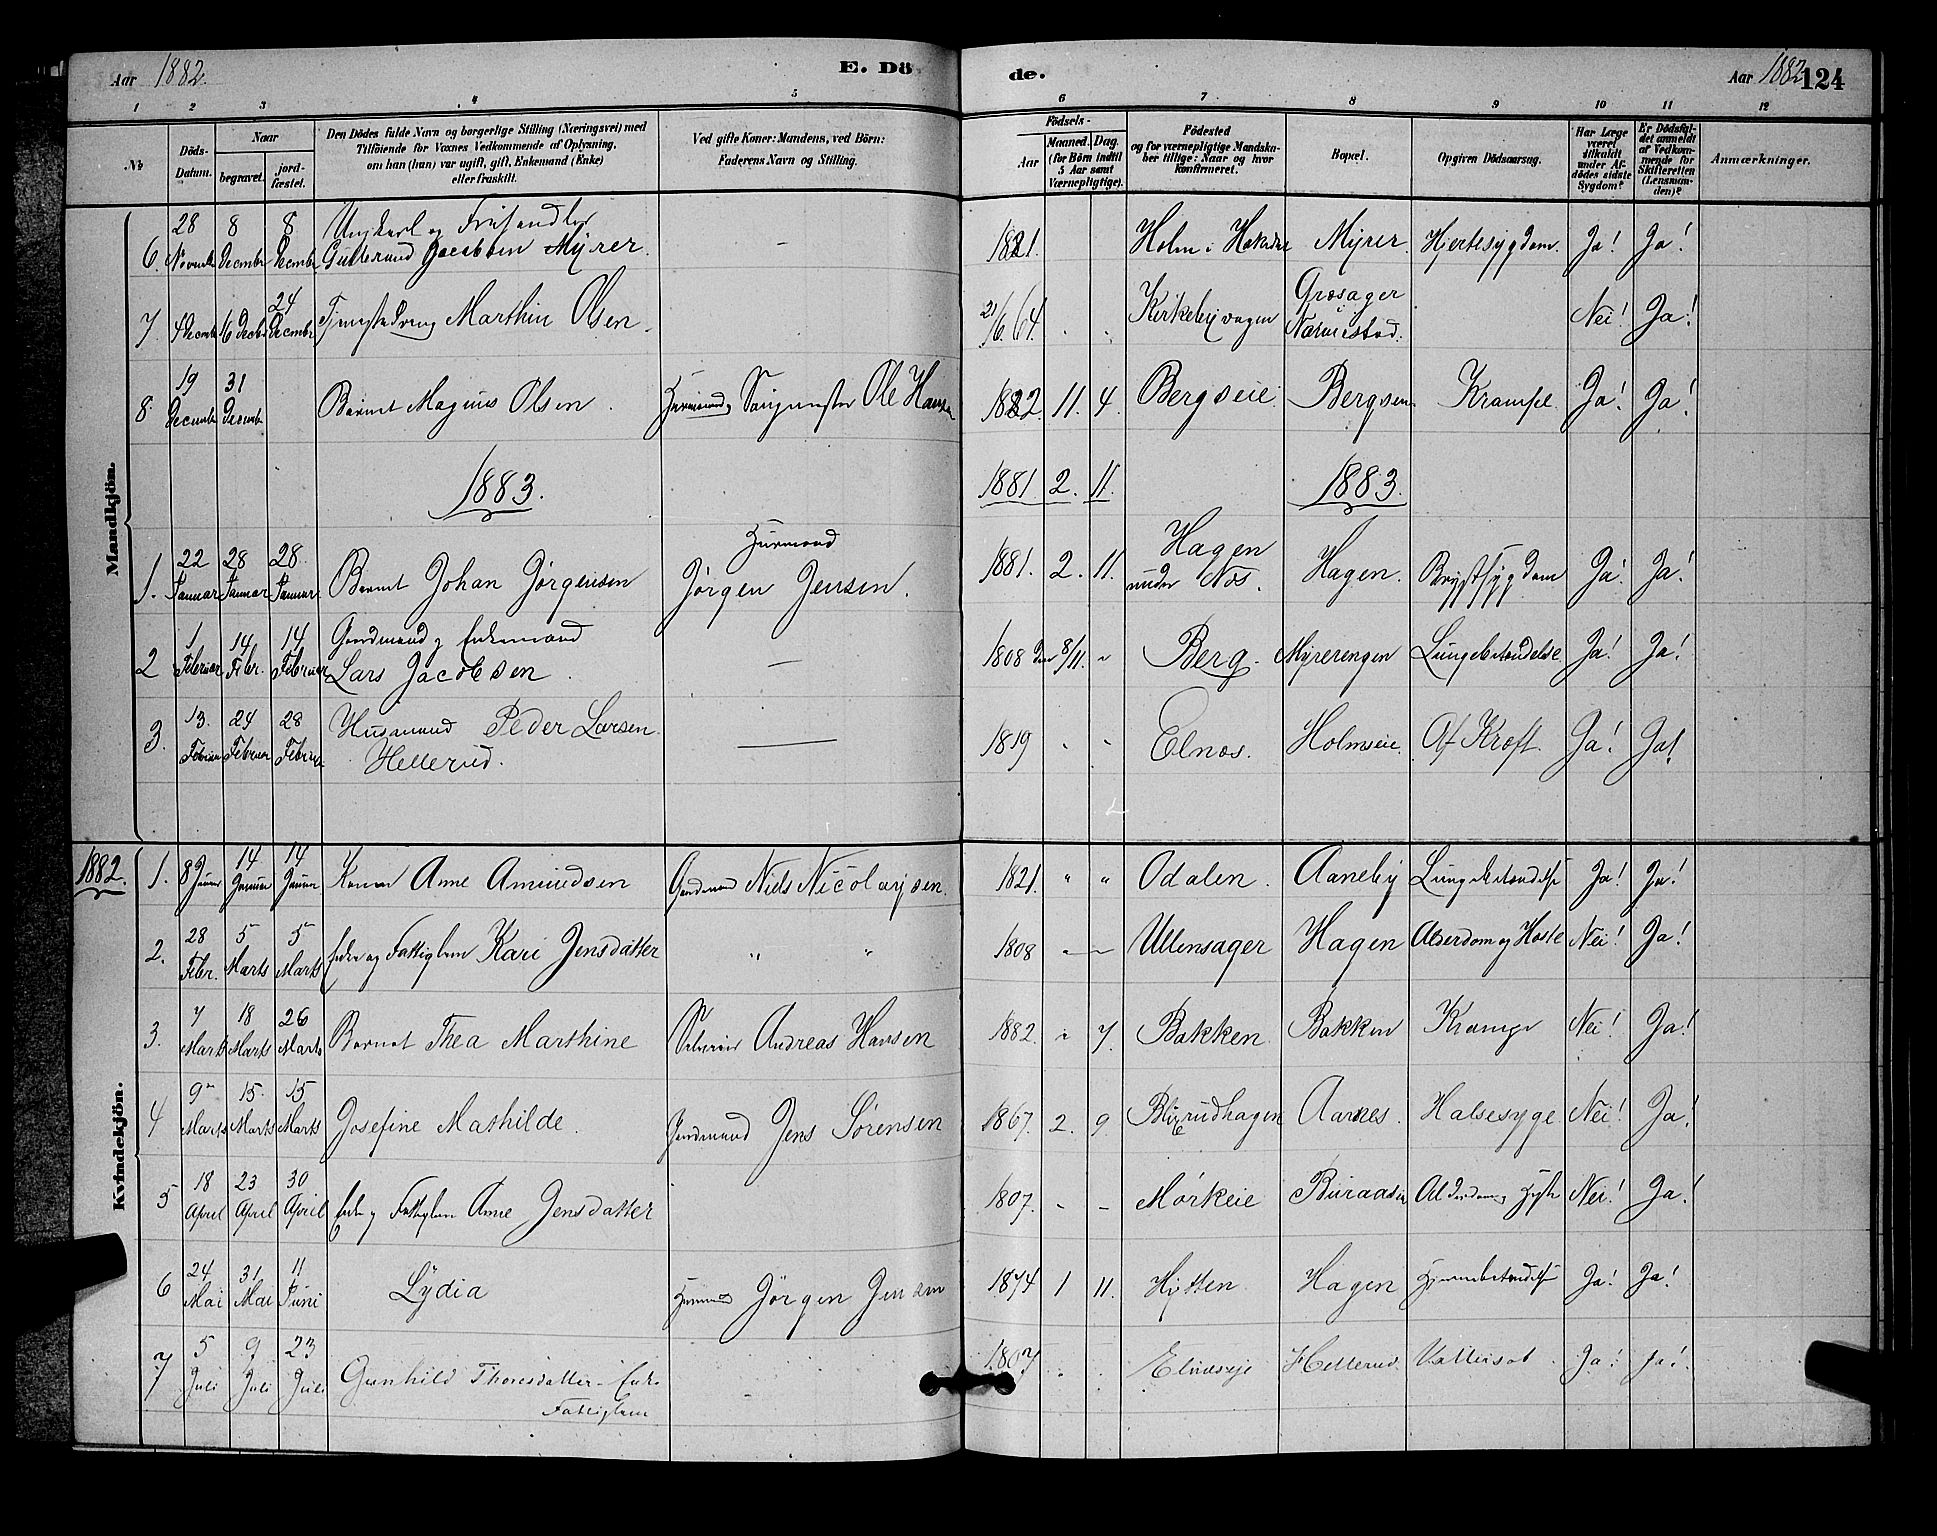 Aar 1882. E. Dö de. Aar 1882 124
1 2 3 4 5 6 7 8 9 10 11 12
No
Döds-Datum.
Naar
begravet.
jord-fæstet.
Den Dödes fulde Navn og borgerlige Stilling (Næringsvei) med
Tilföiende for Voxnes Vedkommende af Oplysning,
om han (hun) var ugift, gift, Enkemand (Enke)
eller fraskilt.
Ved gifte Koner: Mandens, ved Börn:
Faderens Navn og Stilling.
Födsels-
Aar
Maaned. Dag.
(for Börn indtil
5 Aar samt
Værnepligtige).
Födested
og for værnepligtige Mandska-
ber tillige: Naar og hvor
konfirmeret.
Bopæl.
Opgiven Dödsaarsag.
Har Læge
været
tilkaldt
under Af-
dödes sidste
Sygdom?
Er Dödsfal-
det anmeldt
af Vedkom-
mende for
Skifteretten
(Lensman-
den)?
Anmærkninger.
Mandkjön.
6. 28 Novembr 8 Decembr 8 Decembr Ungkarl og
Gulbrand Jacobsen Myrer. - 1821. Holm i Myrer. Hjertesygdom. Ja! Ja!
7. 4 Decembr 16 Decbr 24 Decembr Tjenestedreng Marthin Olsen. 21/6. 64. Kirkebyvagen Græsager Nei! Ja!
8. 19 Decembr 31 Decembr Barnet Magnus Olsen. Ole Hansen 1882. 11. 4. Bergseie Bergsen Krampe. Ja! Ja!
1883. 1881 2. 11. 1883.
1. 22 Januar 28 Januar 28. Januar Barnet Johan Jørgensen Husmand
Jørgen Jensen. 1881. 2. 11. Hagen
under Nos. Hagen. Brystsygdom Ja! Ja!
2 1 Februar 14 Febr. 14 Februar Gaardmand og Enkemand
Lars Jacobsen. - 1808 den 8/11. " Berg. Myrerengen Lungebetændelse Ja! Ja!
3. 13. Februar 24 Februar 28 Februar Husmand Peder Larsen
Hellerud. 1819 " " Elnæs. Holmseie. Af Kræft. Ja! Ja!
Kvindekjön.
1882. 1. 8 Januar 14 Januar 14 Januar Konen Anne Amundsen Gaardmand Niels Nicolaysen. 1821. " " Odalen. Aaneby Lungebetændelse Ja! Ja!
2. 28 Febr. 5 Marts 5 Marts Enke og Fattiglem Kari Jensdatter " " 1808 Ullensager Hagen Alderdom og Hoste Nei! Ja!
3. 7 Marts 18 Marts 26 Marts Barnet Thea Marthine Andreas Hansen 1882. " 7. Bakken. Bakken Krampe Nei! Ja!
4 9 Marts 15. Marts 15 Marts Josefine Mathilde. Gaardmand Jens Sørensen 1867. 2. 9 Aarnes. Halsesyge. Nei! Ja!
5 18 April 23 April 30 April Enke og Fattiglem Anne Jensdatter 1807. - - Mørkeie Nei! Ja!
6 24 Mai 31 Mai 11 Juni Lydia Husmand Jørgen Jensen 1874 1 11. Hytten Hagen Hjernebetændelse Ja! Ja!
7 5 Juli 9 Juli 23 Juli Gunhild Thoresdatter - Enke
Fattiglem 1807 Hellerud. Vattersot. Ja! Ja!